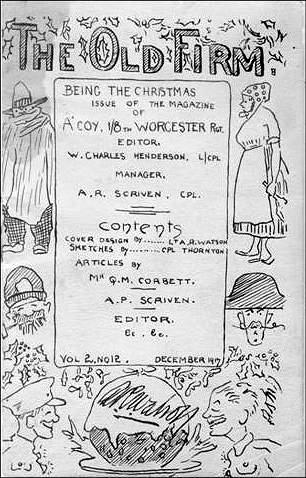 THE OLD FIRM.
BEING THE CHRISTMAS
ISSUE OF THE MAGAZINE
OF
"A" COY, 1/8TH WORCESTER RGT.
EDITOR.
W. CHARLES HENDERSON, L/CPL
MANAGER.
A.R. SCRIVEN, CPL.
Contents
COVER DESIGN BY ........ LT A.R. WATSON
SKETCHES BY ........ CPL THORNTON
ARTICLES BY
MR Q.M. CORBETT.
A.P. SCRIVEN.
EDITOR.
Ec. &c.
VOL 2. NO 12. DECEMBER 1917